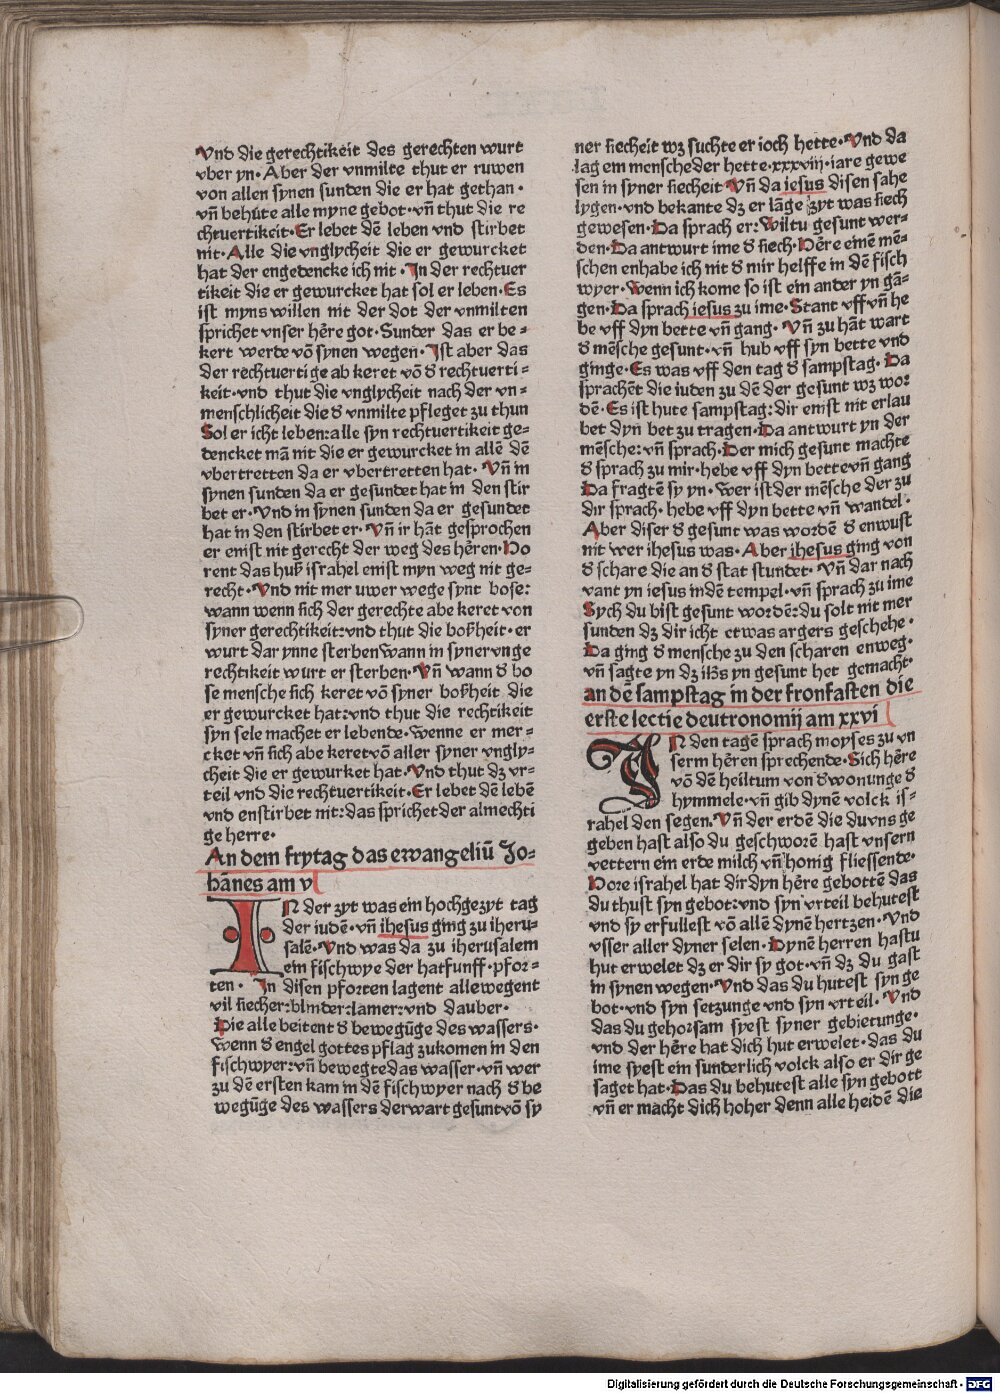 Vnd die gerechtikeit des gerechten wurt
vber yn·Aber der vnmilte thut er ruwen
von allen synen sunden die er hat gethan·
vn̄ behûte alle myne gebot·vn̄ thut die re
chtuertikeit·Er lebet dē leben vnd stirbet
nit·Alle die vnglycheit die er gewurcket
hat der engedencke ich nit·In der rechtuer
tikeit die er gewurcket hat sol er leben·Es
ist myns willen nit der dot der vnmilten
sprichet vnser hēre got·Sunder das er be⸗
kert werde vō synen wegen·Ist aber das
der rechtuertige ab keret vō d̕ rechtuerti⸗
keit·vnd thut die vnglycheit nach der vn⸗
menschlicheit die d̕ vnmilte pfleget zu thun
Sol er icht leben:alle syn rechtuertikeit ge⸗
dencket mā nit die er gewurcket in allē dē
vbertretten da er vbertretten hat·Vn̄ in
synen sunden da er gesundet hat in den stir
bet er·Vnd in synen sunden da er gesundet
hat in den stirbet er·Vn̄ ir hāt gesprochen
er enist nit gerecht der weg des hēren·Ho
rent das huß israhel enist myn weg nit ge⸗
recht·Vnd nit mer uwer wege synt bose:
wann wenn sich der gerechte abe keret von
syner gerechtikeit:vnd thut die boßheit·er
wurt dar ynne sterben Wann in syner vnge
rechtikeit wurt er sterben·Vn̄ wann d̕ bo
se mensche sich keret vō syner boßheit die
er gewurcket hat:vnd thut die rechtikeit
syn sele machet er lebende·Wenne er mer⸗
cket vn̄ sich abe keret vō aller syner vngly⸗
cheit die er gewurket hat·Vnd thut dz vr⸗
teil vnd die rechtuertikeit·Er lebet dē lebē
vnd enstirbet nit:das sprichet der almechti
ge herre·
An dem frytag das ewangeliū Jo⸗
hānes am v
IN der zyt was ein hochgezyt tag
der iudē·vn̄ ihesus ging zu iheru⸗
salē·Vnd was da zu iherusalem
ein fischwye der hat funff·pfor⸗
ten· In disen pforten lagent allewegent
vil siecher:blinder:lamer:vnd dauber·
Die alle beitent d̕ bewegūge des wassers·
Wenn d̕ engel gottes pflag zukomen in den
fischwyer:vn̄ bewegte das wasser·vn̄ wer
zu dē ersten kam in dē fischwyer nach d̕ be
wegūge des wassers der wart gesunt vō sy
ner siecheit wz suchte er ioch hette·Vnd da
lag em mensche der hette·xxxviij·iare gewe
sen in syner siecheit Vn̄ da iesus disen sahe
lygen·vnd bekante dz er lāge zyt was siech
gewesen·Da sprach er:Wiltu gesunt wer⸗
den·Da antwurt ime d̕ siech·Hēre einē mē⸗
schen enhabe ich nit d̕ mir helffe in dē fisch
wyer·Wenn ich kome so ist ein ander yn gā⸗
gen·Da sprach iesus zu ime·Stant vff vn̄ he
be vff dyn bette vn̄ gang· Vn̄ zu hāt wart
d̕ mēsche gesunt·vn̄ hub vff syn bette vnd
ginge·Es was vff den tag d̕ sampstag·Da
sprachēt die iuden zu dē der gesunt wz wor
dē·Es ist hute sampstag:dir enist nit erlau
bet dyn bet zu tragen·Da antwurt yn der
mēsche:vn̄ sprach·Der mich gesunt machte
d̕ sprach zu mir·hebe vff dyn bette vn̄ gang
Da fragtē sy yn·Wer ist der mēsche der zu
dir sprach·hebe vff dyn bette vn̄ wandel·
Aber diser d̕ gesunt was wordē d̕ enwust
nit wer ihesus was·Aber ihesus ging von
d̕ schare die an d̕ stat stundet·Vn̄ dar nach
vant yn iesus in dē tempel·vn̄ sprach zu ime
Sych du bist gesunt wordē:du solt nit mer
sunden dz dir icht etwas argers geschehe·
Da ging d̕ mensche zu den scharen enweg·
vn̄ sagte yn dz ihs̄ yn gesunt het gemacht·
an dē sampstag in der fronfasten die
erste lectie deutronomij am xxvi
IN den tagē sprach moyses zu vn
serm hēren sprechende·Sich hēre
vō dē heiltum von d̕ wonunge d̕
hymmele·vn̄ gib dynē volck is⸗
rahel den segen·Vn̄ der erdē die du vns ge
geben hast also du geschworē hast vnsern
vettern ein erde milch vn̄ honig fliessende·
Hore israhel hat dir dyn hēre gebottē das
du thust syn gebot:vnd syn vrteil behutest
vnd sy erfullest vō allē dynē hertzen·Vnd
vsser aller dyner selen·Dynē herren hastu
hut erwelet dz er dir sy got·vn̄ dz du gast
in synen wegen·Vnd das du hutest syn ge
bot·vnd syn setzunge vnd syn vrteil·Vnd
das du gehorsam syest syner gebietunge·
vnd der hēre hat dich hut erwelet·das du
ime syest ein sunderlich volck also er dir ge
saget hat·Das du behutest alle syn gebott
vn̄ er macht dich hoher denn alle heidē die
Digitalisierung gefördert durch die Deutsche Forschungsgemeinschaft - DFG